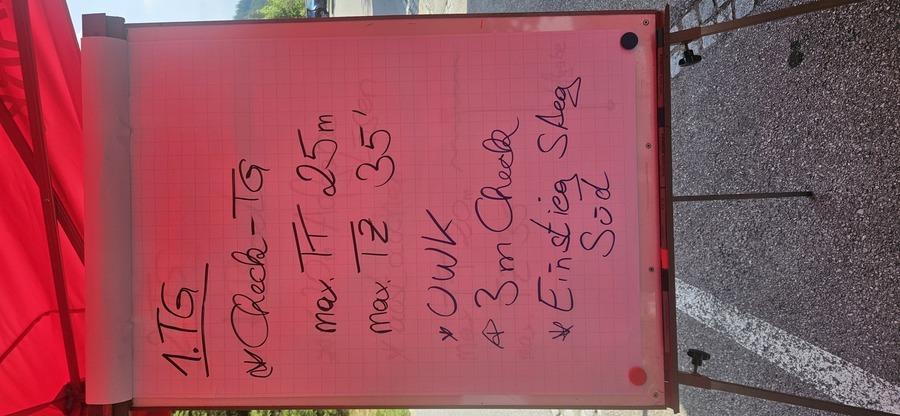 1. TG
* Check-TG
max. TT 25m
max. TZ 35'
* UWK
* 3m Check
* Einstieg Steg
Süd